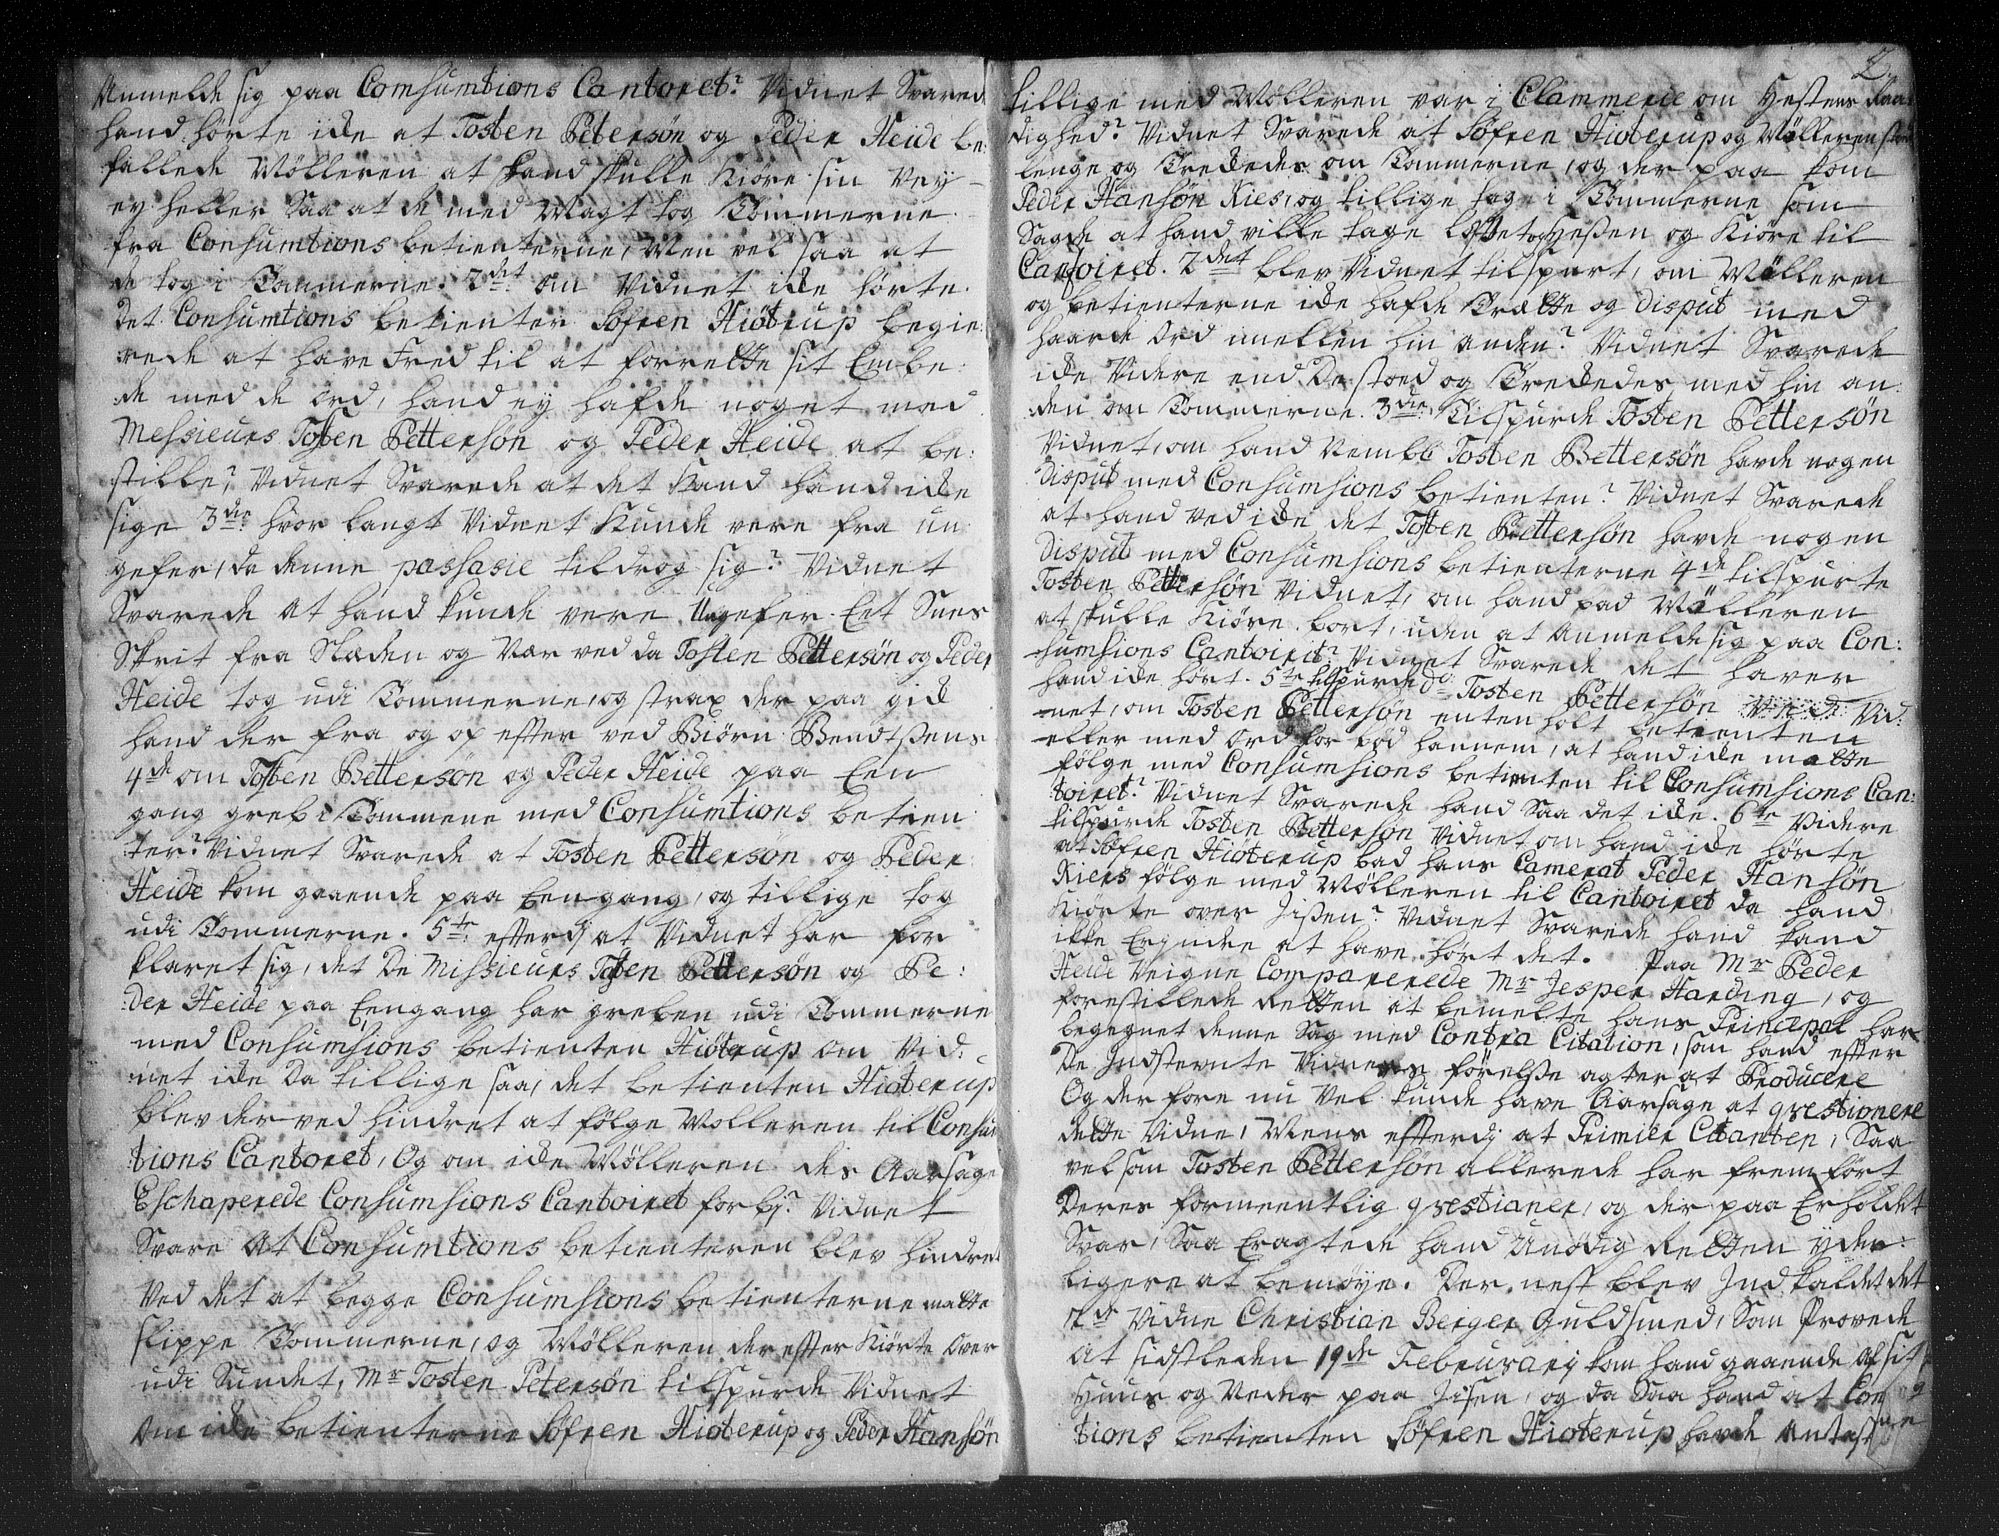 Anmelde sig paa Comsumtions Cantoret? Vidnet Svarede
hand hørte icke at Tosten Petersøn og Peder Heide be:
fallede Mølleren at hand skulle Kiøre sin Vey
ey heller Saa at de med Magt tog Tømmerne
fra Consumtions betienterne, Men vel saa at
de tog i Tømmerne. 2det om Vidnet icke hørte
Det Consumtions betienter Søfren Hiøtrup begie:
rede at have Fred til at forrette sit Embe:
de med de ord, hand ey hafde noget med
Messieurs Tosten Pettersøn og Peder Heide at be:
stille? Vidnet Svarede at det kand hand icke
sige 3die hvor langt Vidnet Kunde vere fra un
gefer, da denne passasie tildrog sig? Vidnet
Svarede at hand kunde vere Ungefer Eet Snes
Skrit fra Slæden og Var ved da Tosten Pettersøn og Peder
Heide tog udi Tømmerne, og strax der paa gick
hand der fra og op efter ved Biørn Bendtsens
4de om Tosten Pettersøn og Peder Heide paa Een
gang greb i Tømmene med Consumtions betien
ter? Vidnet Svarede at Tosten Petterson og Peder
Heide kom gaaende paa Eengang, og tillige tog
udi Tømmerne. 5te efterdj at Vidnet har for
klaret sig, det De Missieurs Tosten Pettersøn og Pe:
der Heide paa Eengang har greben udi Tømmerne
med Consumsions betienten Hiøterup om Vid:
net icke Da tillige saa, det betienten Hioterup
blev der ved hindret at følge Mølleren til Consum
tions Cantoret, Og om icke Mølleren des Aarsage
Eschaperede Consumsions Cantoiret forbj? Vidnet
Svare at Consumtions betienteren blev hindret
Ved det at begge Consumsions betienterne matte
slippe Tømmerne, og Mølleren der efter Kiørte Over
udi Sundet, Mr Tosten Petersøn tilspurde Vidnet
Om icke betienterne Søfren Hioterup og Peder Hansøn
2.
tillige med Mølleren var i Clammerie om Hestens
dighed? Vidnet Svarede at Søfren Hioterup og Mølleren stod
lenge og Treckedes om Tømmerne, og der paa kom
Peder Hansøn Kies, og tillige tog i Tømmerne som
Sagde at hand ville tage Hesten og Kiøre til
Cantoiret. 2det blev Vidnet tilspurt, om Mølleren
og betienterne icke hafde Trætte og disput med
haarde Ord imellem hin anden? Vidnet Svarede
icke Videre end De stoed og Treckedes med hin an
den om Tømmerne. 3die Tilspurde Tosten Pettersøn
Vidnet, om hand Nembl Tosten Bettersøn havde nogen
Disput med Consumsions betienten? Vidnet Svarede
at hand ved icke det Tosten Bettersøn havde nogen
Disput med Consumsions betienterne 4de tilspurte
Tosten Pettersøn Vidnet, om hand bad Mølleren
at skulle Kiøre bort, uden at Anmelde sig paa Con:
sumsions Cantoirit? Vidnet Svarede det haver
hand icke hørt. 5te tilspurde do Tosten Pettersøn Vid:
net, om Tosten Pettersøn enten holt betienten
eller med ord for bød hannem, at hand icke matte
følge med Consumsions betienten til Consumsions Can:
toiret? Vidnet Svarede hand Saa det icke. 6te Videre
tilspurde Tosten Bettersøn Vidnet om hand icke hørte
at Søfren Hioterup bad hans Camerat Peder Hansøn
Kiers følge med Mølleren til Cantoiret da hand
Kiørte over Jisen? Vidnet Svarede hand kand
ikke Erindre at have hørt det. Paa Mr Peder
Heide Veigne Comparerede Mr Jesper Harding, og
forestillede Retten at bemelte hans Principal har
begegnet denne Sag med Contra Citation, som hand efter
De Indstevnte Vidners førelse agter at Producere
Og der fore nu Vel kunde have Aarsage at qvestionere
dette Vidne, Mens efterdj at Primier Citanten, Saa
vel som Tosten Petterson allerede har fremført
Deres formeentlig qvestianer, og der paa Erholdet
Svar, Saa Eragtede hand Unødig Retten yder:
ligere at bemøye. Der nest blev Indkaldet det
2de Vidne Christian Berger Guldsmed, Som Provede
at sidstleden 19de Februarij kom hand gaaende af sit
Huus og Neder paa Jisen, og da Saa hand at Con
tions betienten Søfren Hioterup havde